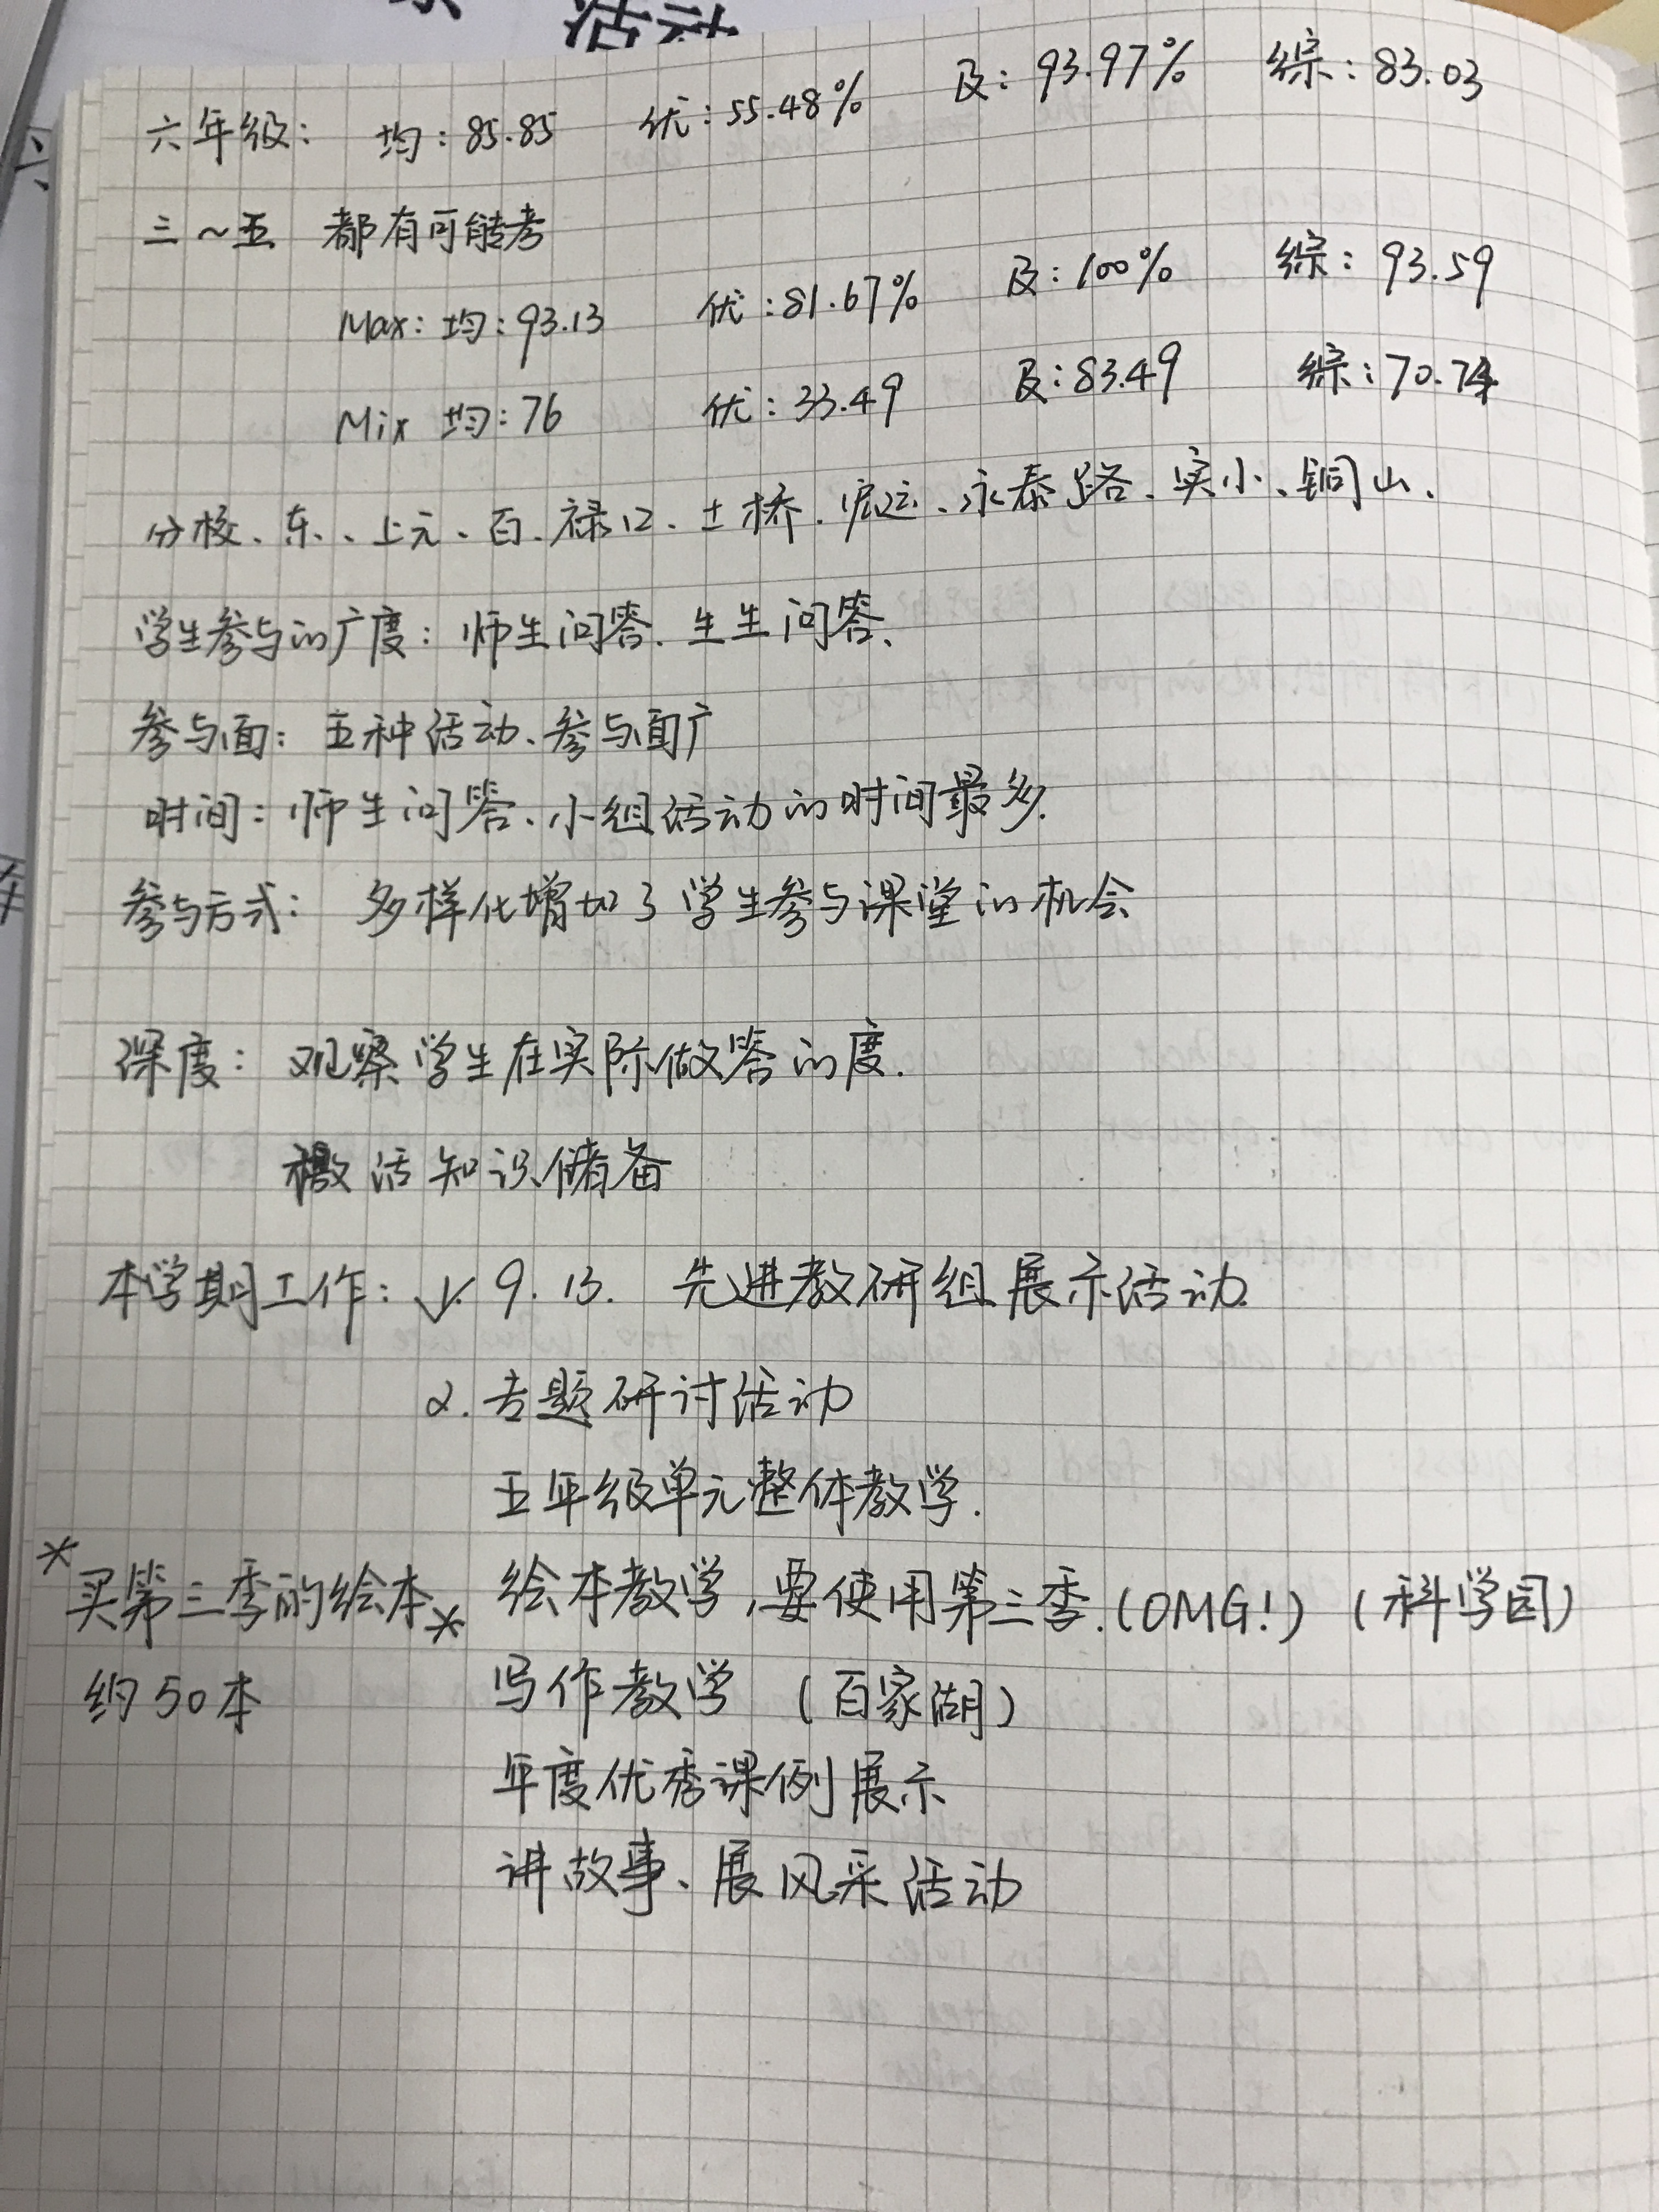 活动
六年级: 均:85.85 优:55.48% 及:93.97% 综:83.03
三~五 都有可能考
Max: 均:93.13 优:81.67% 及:100% 综:93.59
Mix 均:76 优:33.49 及:83.49 综:70.74
分校、东、上元、百、禄口、土桥、宏运、永泰路、实小、铜山、
学生参与的广度: 师生问答、生生问答、
参与面: 五种活动、参与面广
时间: 师生问答、小组活动的时间最多.
参与方式: 多样化增加了学生参与课堂的机会
深度: 观察学生在实际做答的度.
激活知识储备
本学期工作: 1. 9.13. 先进教研组展示活动.
2. 专题研讨活动
五年级单元整体教学.
*买第三季的绘本* 绘本教学,要使用第三季.(OMG!) (科学园)
约50本 写作教学 (百家湖)
年度优秀课例展示
讲故事、展风采活动